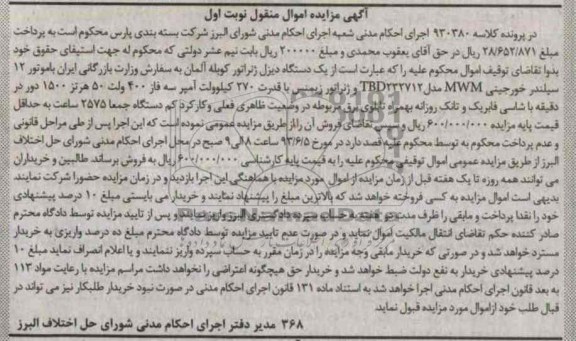 آگهی مزایده اموال منقول نوبت اول
در پرونده کلاسه ۹۳۰۳۸۰ اجرای احکام مدنی شعبه اجرای احکام مدنی شورای البرز شرکت بسته بندی پارس محکوم است به پرداخت
مبلغ ۲۸/۶۵۲/۸۷۱ ریال در حق آقای یعقوب محمدی و مبلغ ۲۰۰۰۰۰۰ ریال بابت نیم عشر دولتی که محکوم له جهت استیفای حقوق خود
بدوا تقاضای توقیف اموال محکوم علیه را که عبارت است از یک دستگاه دیزل ژنراتور کوپله آلمان به سفارش وزارت بازرگانی ایران باموتور ۱۲
سیلندر خورجینی MWM مدل TBD۲۳۲۷۱۲ و ژنراتور زیمنس با قدرت ۲۷۰ کیلووات آمپر سه فاز ۴۰۰ ولت ۵۰ هرتز ۱۵۰۰ دور در
دقیقه با شاسی فابریک و تانک روزانه بهمراه تابلوی برق مربوطه در وضعیت ظاهری فعلی وکارکرد کم دستگاه جمعا ۲۵۷۵ ساعت به حداقل
قیمت پایه مزایده ۶۰۰/۰۰۰/۰۰۰ ریال و سپس تقاضای فروش آن رااز طریق مزایده عمومی نموده است که این اجرا پس از طی مراحل قانونی
و عدم پرداخت محکوم به توسط محکوم علیه قصد دارد در مورخ ۹۳/۶/۵ ساعت ۸ الی ۹ صبح در محل اجرای احکام مدنی شورای حل اختلاف
البرز از طریق مزایده عمومی اموال توقیفی محکوم علیه را به قیمت پایه کارشناسی ۶۰۰/۰۰۰/۰۰۰ ریال به فروش برساند. طالبین و خریداران
می توانند همه روزه تا یک هفته قبل از زمان مزایده از اموال مورد مزایده با هماهنگی این اجرا بازدید و در زمان مزایده حضورا شرکت نمایند.
بدیهی است اموال مزایده به کسی فروخته خواهد شد که بالاترین مبلغ را پیشنهاد نمایند و خریدار می بایستی مبلغ ۱۰ درصد پیشنهادی
خود را نقدا پرداخت و مابقی را ظرف مدت دو هفته به حساب سپرده دادگستری البرز واریز نمایند و پس از تایید مزایده توسط دادگاه محترم
صادر کننده حکم تقاضای انتقال مالکیت اموال نماید و در صورت عدم تایید مزایده توسط دادگاه محترم مبلغ ده درصد واریزی به خریدار
مسترد خواهد شد و در صورتی که خریدار مابقی وجه مزایده را در زمان مقرر به حساب سپرده واریز ننمایند و یا اعلام انصراف نماید مبلغ ۱۰
درصد پیشنهادی خریدار به نفع دولت ضبط خواهد شد و خریدار حق هیچگونه اعتراضی را نخواهد داشت مراسم مزایده با رعایت مواد ۱۱۳
به بعد قانون اجرای احکام مدنی اجرا خواهد شد به استناد ماده ۱۳۱ قانون اجرای احکام مدنی در صورت نبود خریدار طلبکار نیز می تواند در
قبال طلب خود ازاموال مورد مزایده قبول نماید.
۳۶۸ مدیر دفتر اجرای احکام مدنی شورای حل اختلاف البرز